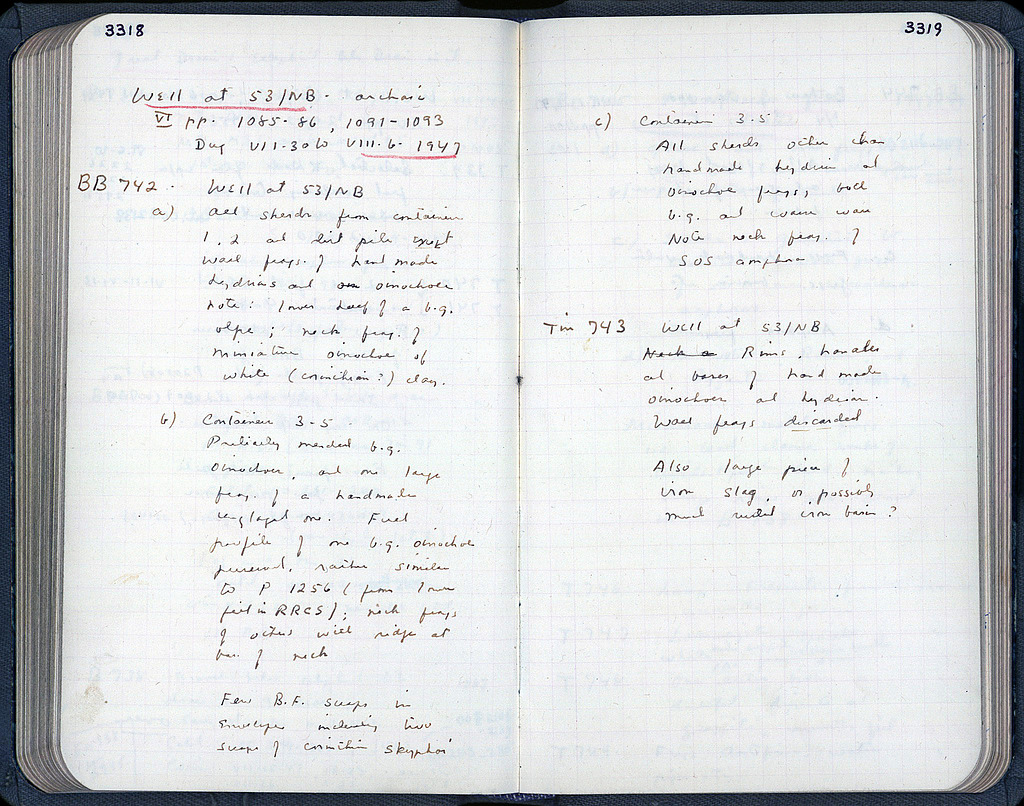 3318
Well at 53/NB - archaic
VI pp. 1085-86, 1091-1093
Dug VII-30 to VIII-6-1947
BB 742. Well at 53/NB
a) All sherds from container
1, 2 and dirt pile except
wall frags. of hand made
hydrias and oinochoe
note: lower half of a b.g.
olpe; neck frag. of
miniature oinochoe of
white (corinthian?) clay.
b) Container 3-5
Partially mended b.g.
oinochoe, and one large
frag. of a handmade
one. Full
profile of one b.g. oinochoe
preserved, rather similar
to P 1256 (from lower
fill in RRCS); neck frags
of others with ridge at
base of neck
Few B.F. scraps in
envelope including two
scraps of corinthian skyphoi
3319
c) Container 3-5
All sherds other than
handmade hydria and
oinochoe frags, both
b.g. and coarse ware
Note neck frag. of
SOS amphora
Tin 743 Well at 53/NB
Neck a Rims, handles
and bases of hand made
oinochoes and hydrias.
Wall frags discarded
Also large piece of
iron slag, or possibly
much rusted iron basin?